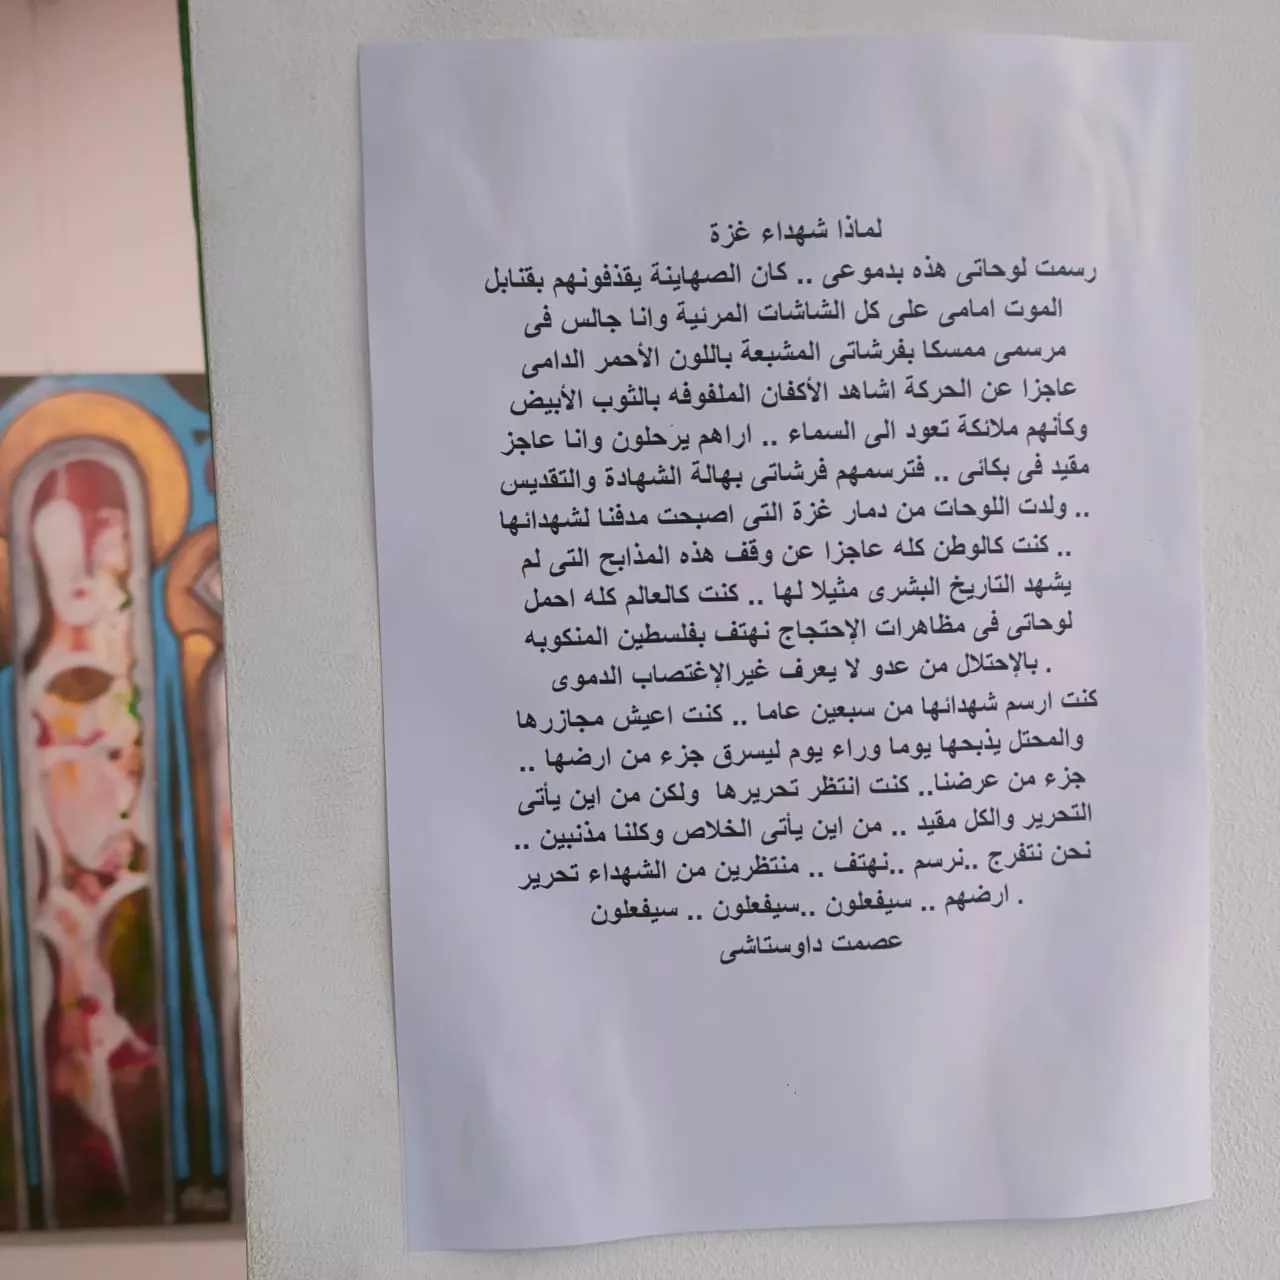 لماذا شهداء غزة
رسمت لوحاتى هذه بدموعى .. كان الصهاينة يقذفونهم بقنابل
الموت امامى على كل الشاشات المرئية وانا جالس فى
مرسمى ممسكا بفرشاتى المشبعة باللون الأحمر الدامى
عاجزا عن الحركة اشاهد الأكفان الملفوفه بالثوب الأبيض
وكأنهم ملائكة تعود الى السماء .. اراهم يرحلون وانا عاجز
مقيد فى بكائى .. فترسمهم فرشاتى بهالة الشهادة والتقديس
.. ولدت اللوحات من دمار غزة التى اصبحت مدفنا لشهدائها
.. كنت كالوطن كله عاجزا عن وقف هذه المذابح التى لم
يشهد التاريخ البشرى مثيلا لها .. كنت كالعالم كله احمل
لوحاتى فى مظاهرات الإحتجاج نهتف بفلسطين المنكوبه
. بالإحتلال من عدو لا يعرف غيرالإغتصاب الدموى
كنت ارسم شهدائها من سبعين عاما .. كنت اعيش مجازرها
والمحتل يذبحها يوما وراء يوم ليسرق جزء من ارضها ..
جزء من عرضنا.. كنت انتظر تحريرها ولكن من اين يأتى
التحرير والكل مقيد .. من اين يأتى الخلاص وكلنا مذنبين ..
نحن نتفرج ..نرسم ..نهتف .. منتظرين من الشهداء تحرير
. ارضهم .. سيفعلون ..سيفعلون .. سيفعلون
عصمت داوستاشى